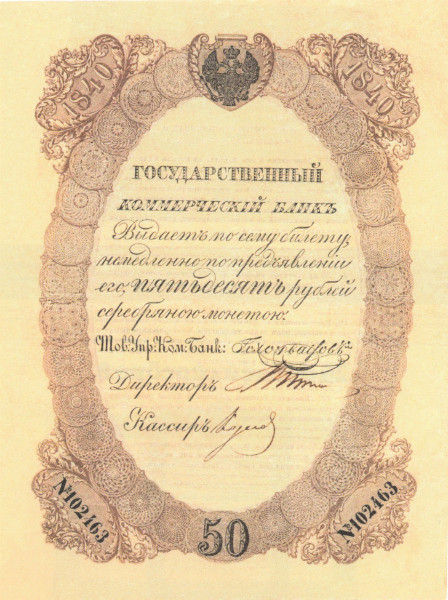 1840
1840
ГОСУДАРСТВЕННЫЙ
КОММЕРЧЕСКІЙ БАНКЪ
Выдаетъ по сему билету,
немедленно по предъявленіи
его, пятьдесятъ рублей
серебряною монетою:
Тов. Упр. Ком. Банк:
Директоръ
Кассиръ
№102463
50
№102463